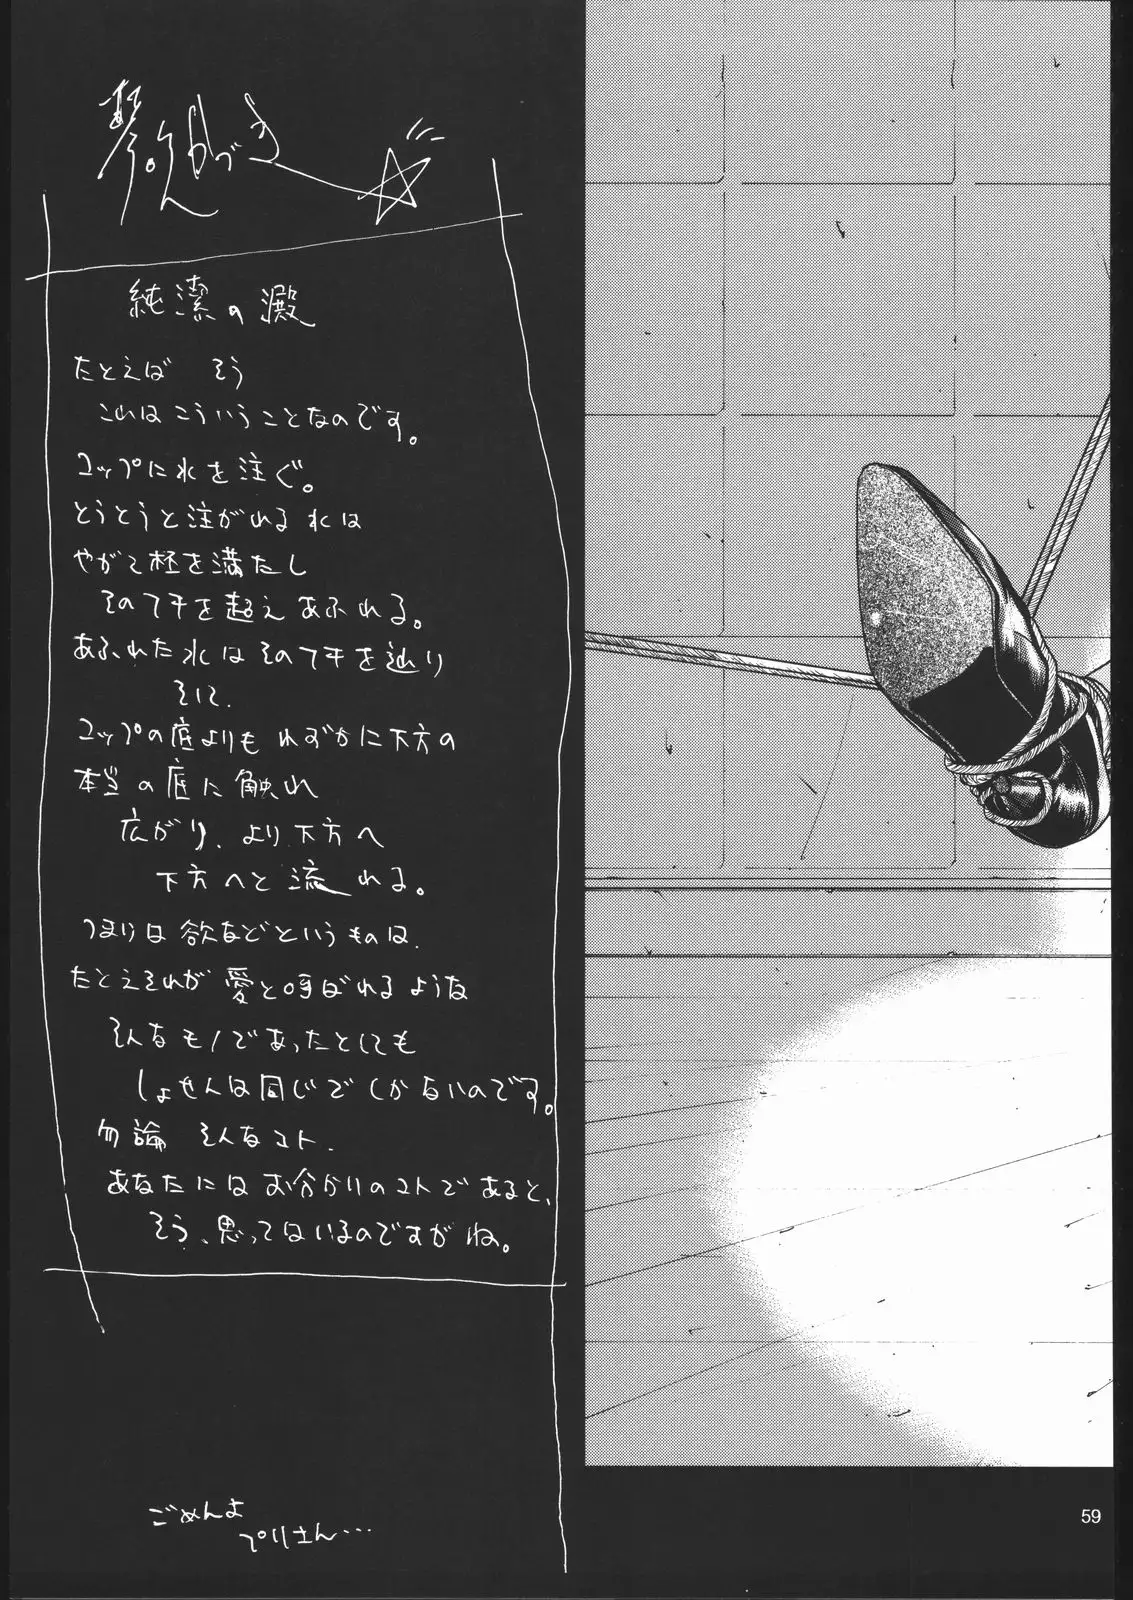 琴吹かづき
純潔の澱
たとえば そう
これはこういうことなのです。
コップに水を注ぐ。
とうとうと注がれる水は
やがて杯を満たし
そのフチを超えあふれる。
あふれた水はそのフチを辿り
そして、
コップの底よりもわずかに下方の
本当の底に触れ
広がり、より下方へ
下方へと流れる。
つまりは欲などというものは、
たとえそれが愛と呼ばれるような
そんなモノであったとしても
しょせんは同じでしかないのです。
勿論 そんなコト、
あなたにはお分かりのコトであると、
そう、思ってはいるのですがね。
ごめんよ
プリさん…
59